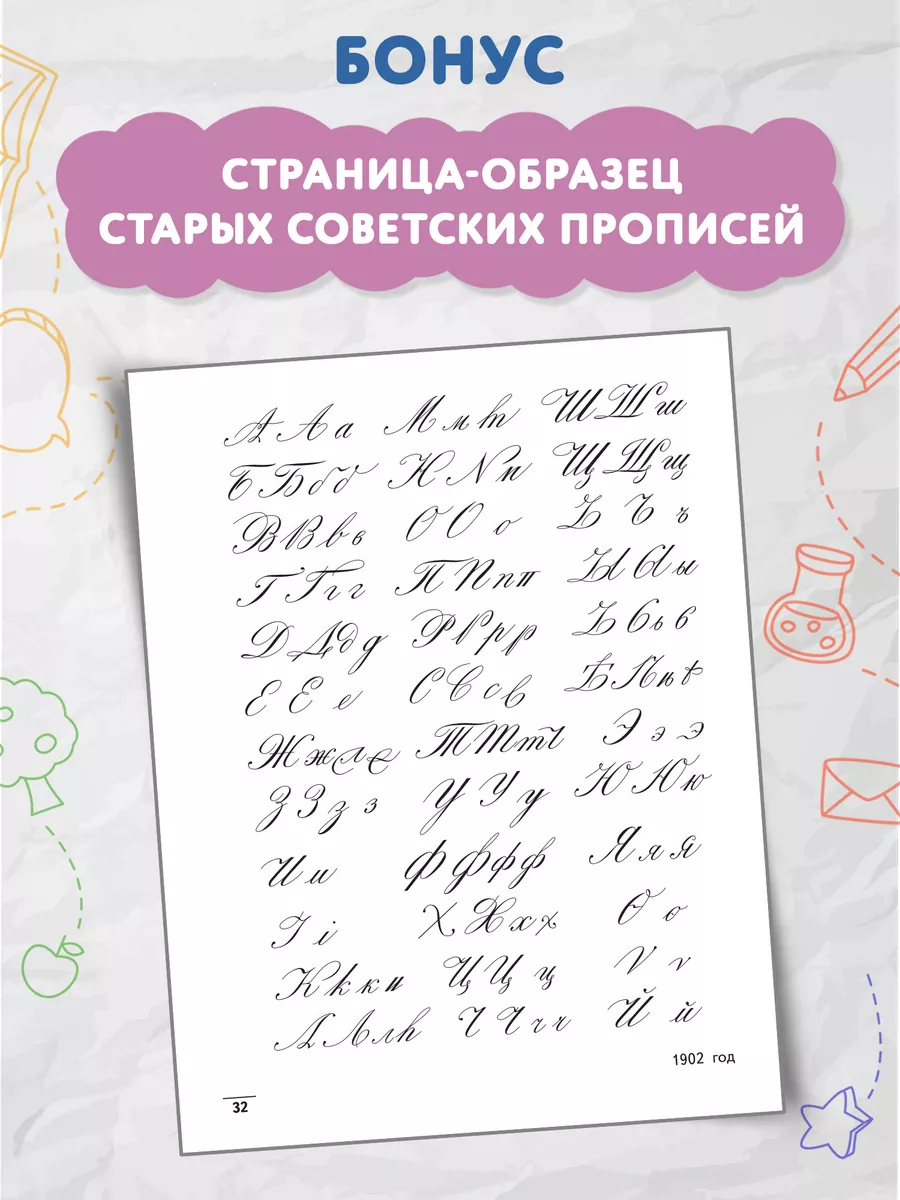 БОНУС
СТРАНИЦА-ОБРАЗЕЦ
СТАРЫХ СОВЕТСКИХ ПРОПИСЕЙ
А А а М м т Ш Ш ш
Б Б б б Н N п Щ Щ щ
В В в в О О о Ъ Ъ ъ
Г Г г г П П п п Ы Ы ы
Д Д д д Р Р р р Ь Ь ь ь
Е Е е С С с в Ѣ Ѣ ѣ ѣ
Ж ж Т Т т Э э э
З З з з У У у Ю Ю ю
И и Ф Ф ф ф Я я я
І і Х Х х х Ѳ ѳ
К к к к Ц Ц ц Ѵ ѵ
Л Л л Ч Ч ч ч Й й
1902 год
32